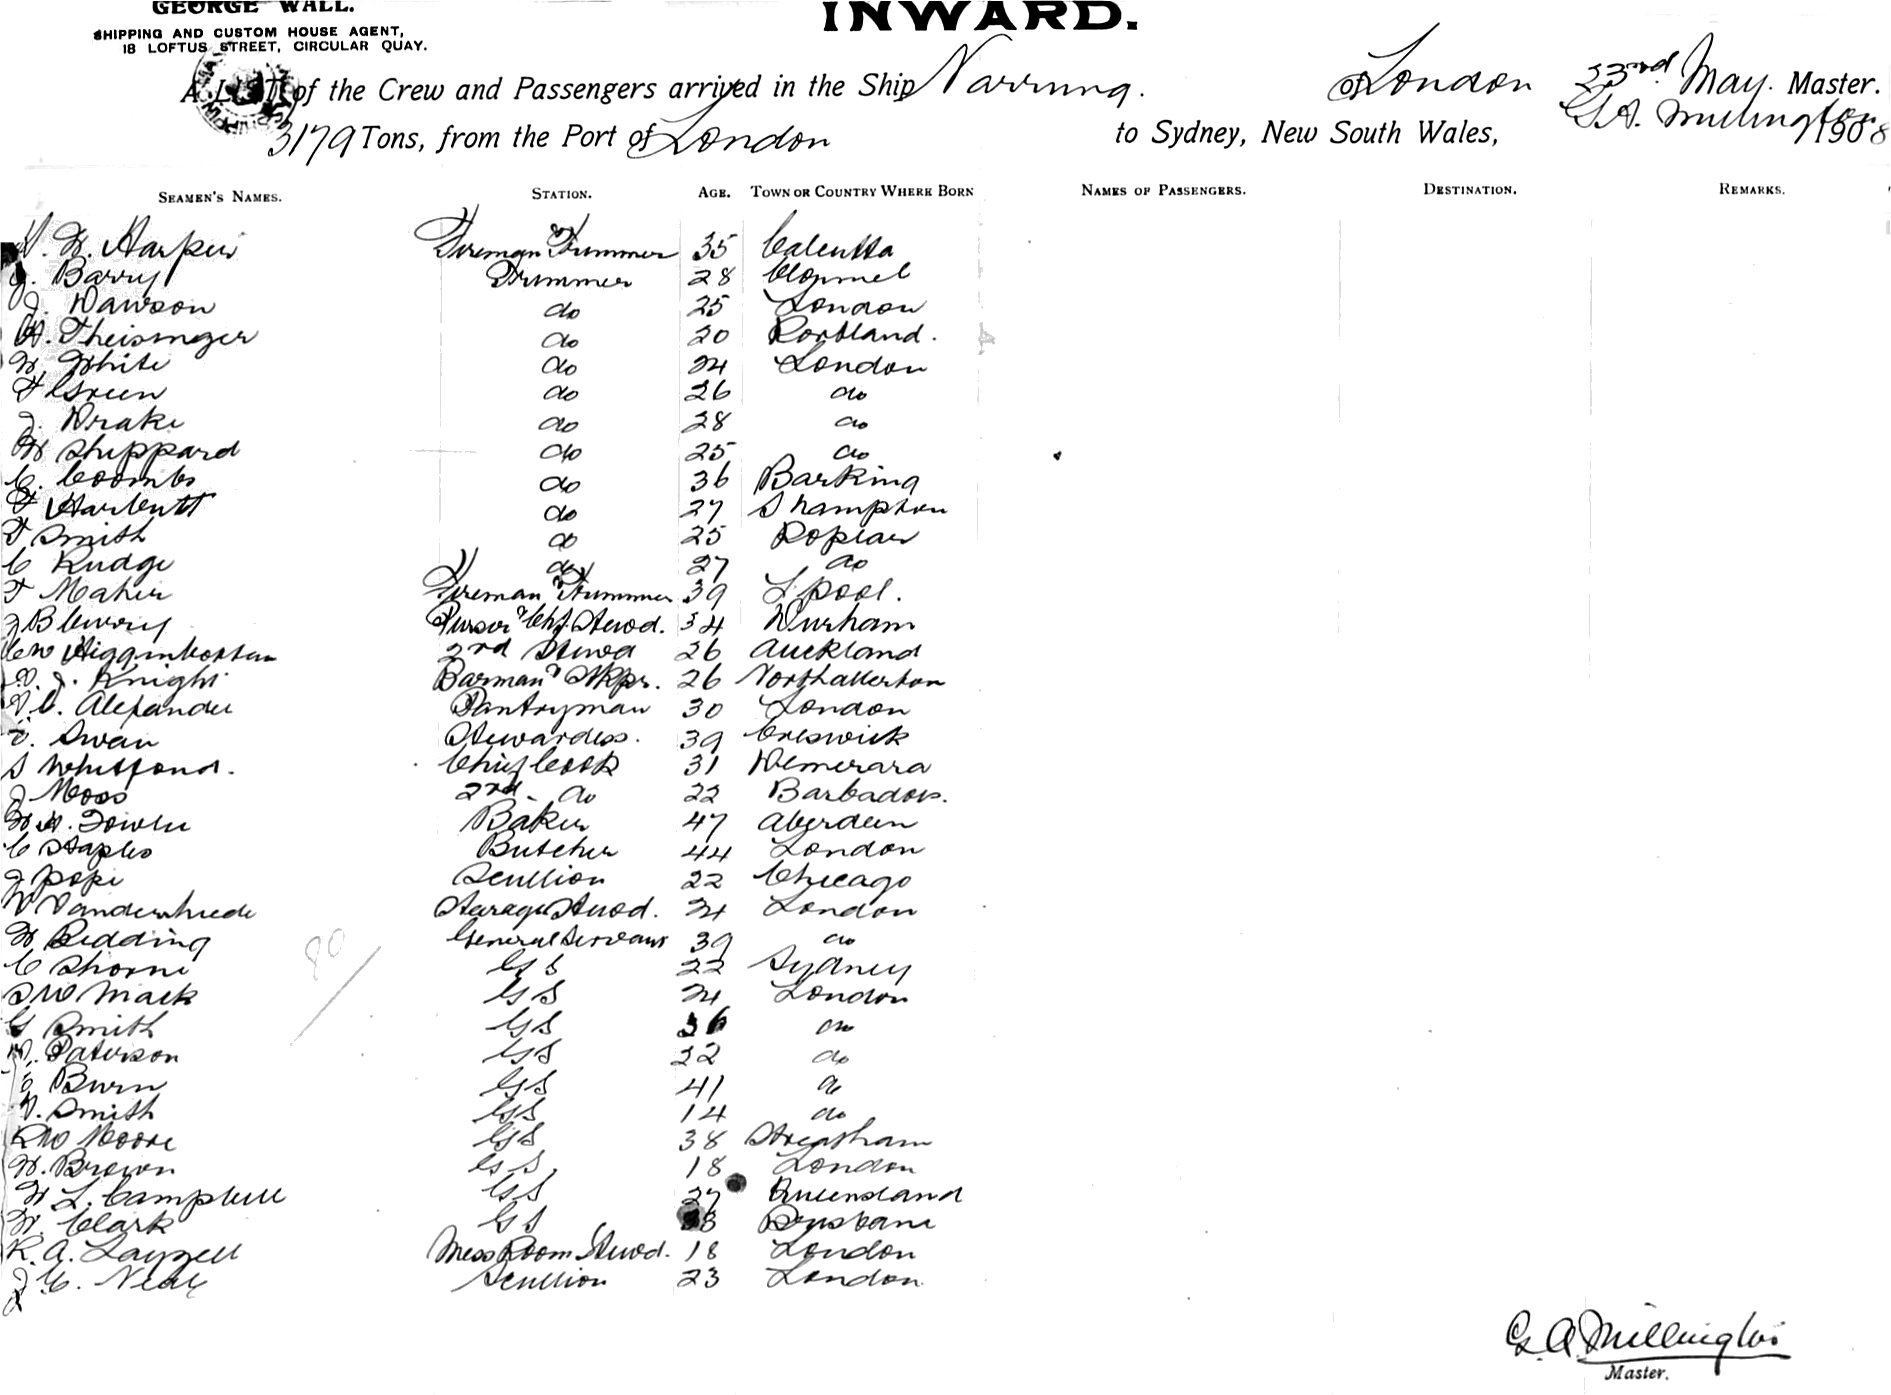 GEORGE WALL.
SHIPPING AND CUSTOM HOUSE AGENT,
18 LOFTUS STREET, CIRCULAR QUAY.
INWARD.
A LIST of the Crew and Passengers arrived in the Ship Narrung. of London 23rd May. Master.
G.A. Millington
3179 Tons, from the Port of London to Sydney, New South Wales, 1908
SEAMEN'S NAMES. STATION. AGE. TOWN OR COUNTRY WHERE BORN NAMES OF PASSENGERS. DESTINATION. REMARKS.
W. Harper Fireman & Trimmer 35 Calcutta
J. Barry Trimmer 28 Clonmel
J. Dawson do 25 London
Theisinger do 20 Portland.
W. White do 24 London
F Green do 26 do
J. Drake do 28 do
W Sheppard do 25 do
C. Coombs do 36 Barking
F Harbutt do 27 S hampton
F Smith do 25 Poplar
C Rudge do 27 do
T Maher Fireman & Trimmer 39 L pool.
J B Curry Purser & Chf. Stewd. 34 Durham
CW Higginbottam 2nd Stewd 26 Auckland
J. Knight Barman & Stkpr. 26 Northallerton
C. Alexander Pantryman 30 London
Swan Stewardess. 39 Creswick
S Whitford. Chief Cook 31 Demerara
J Moss 2nd. do 22 Barbados.
W. Fowler Baker 47 Aberdeen
C Staples Butcher 44 London
J Pope Scullion 22 Chicago
Vanderstuede Steerage Stewd. 24 London
W Redding General Servant 39 do
C Thorne G S 22 Sydney
W Mack G S 24 London
G Smith G S 36 do
Paterson G S 22 do
Burn G S 41 do
Smith G S 14 do
RW Moore G S 38 Streatham
W. Brown G S, 18 London
W L. Campbell G S 27 Queensland
W. Clark G S 38 Brisbane
R. A. Layzell Mess Room Stewd. 18 London
J C. Neal Scullion 23 London
80
G. A. Millington
Master.